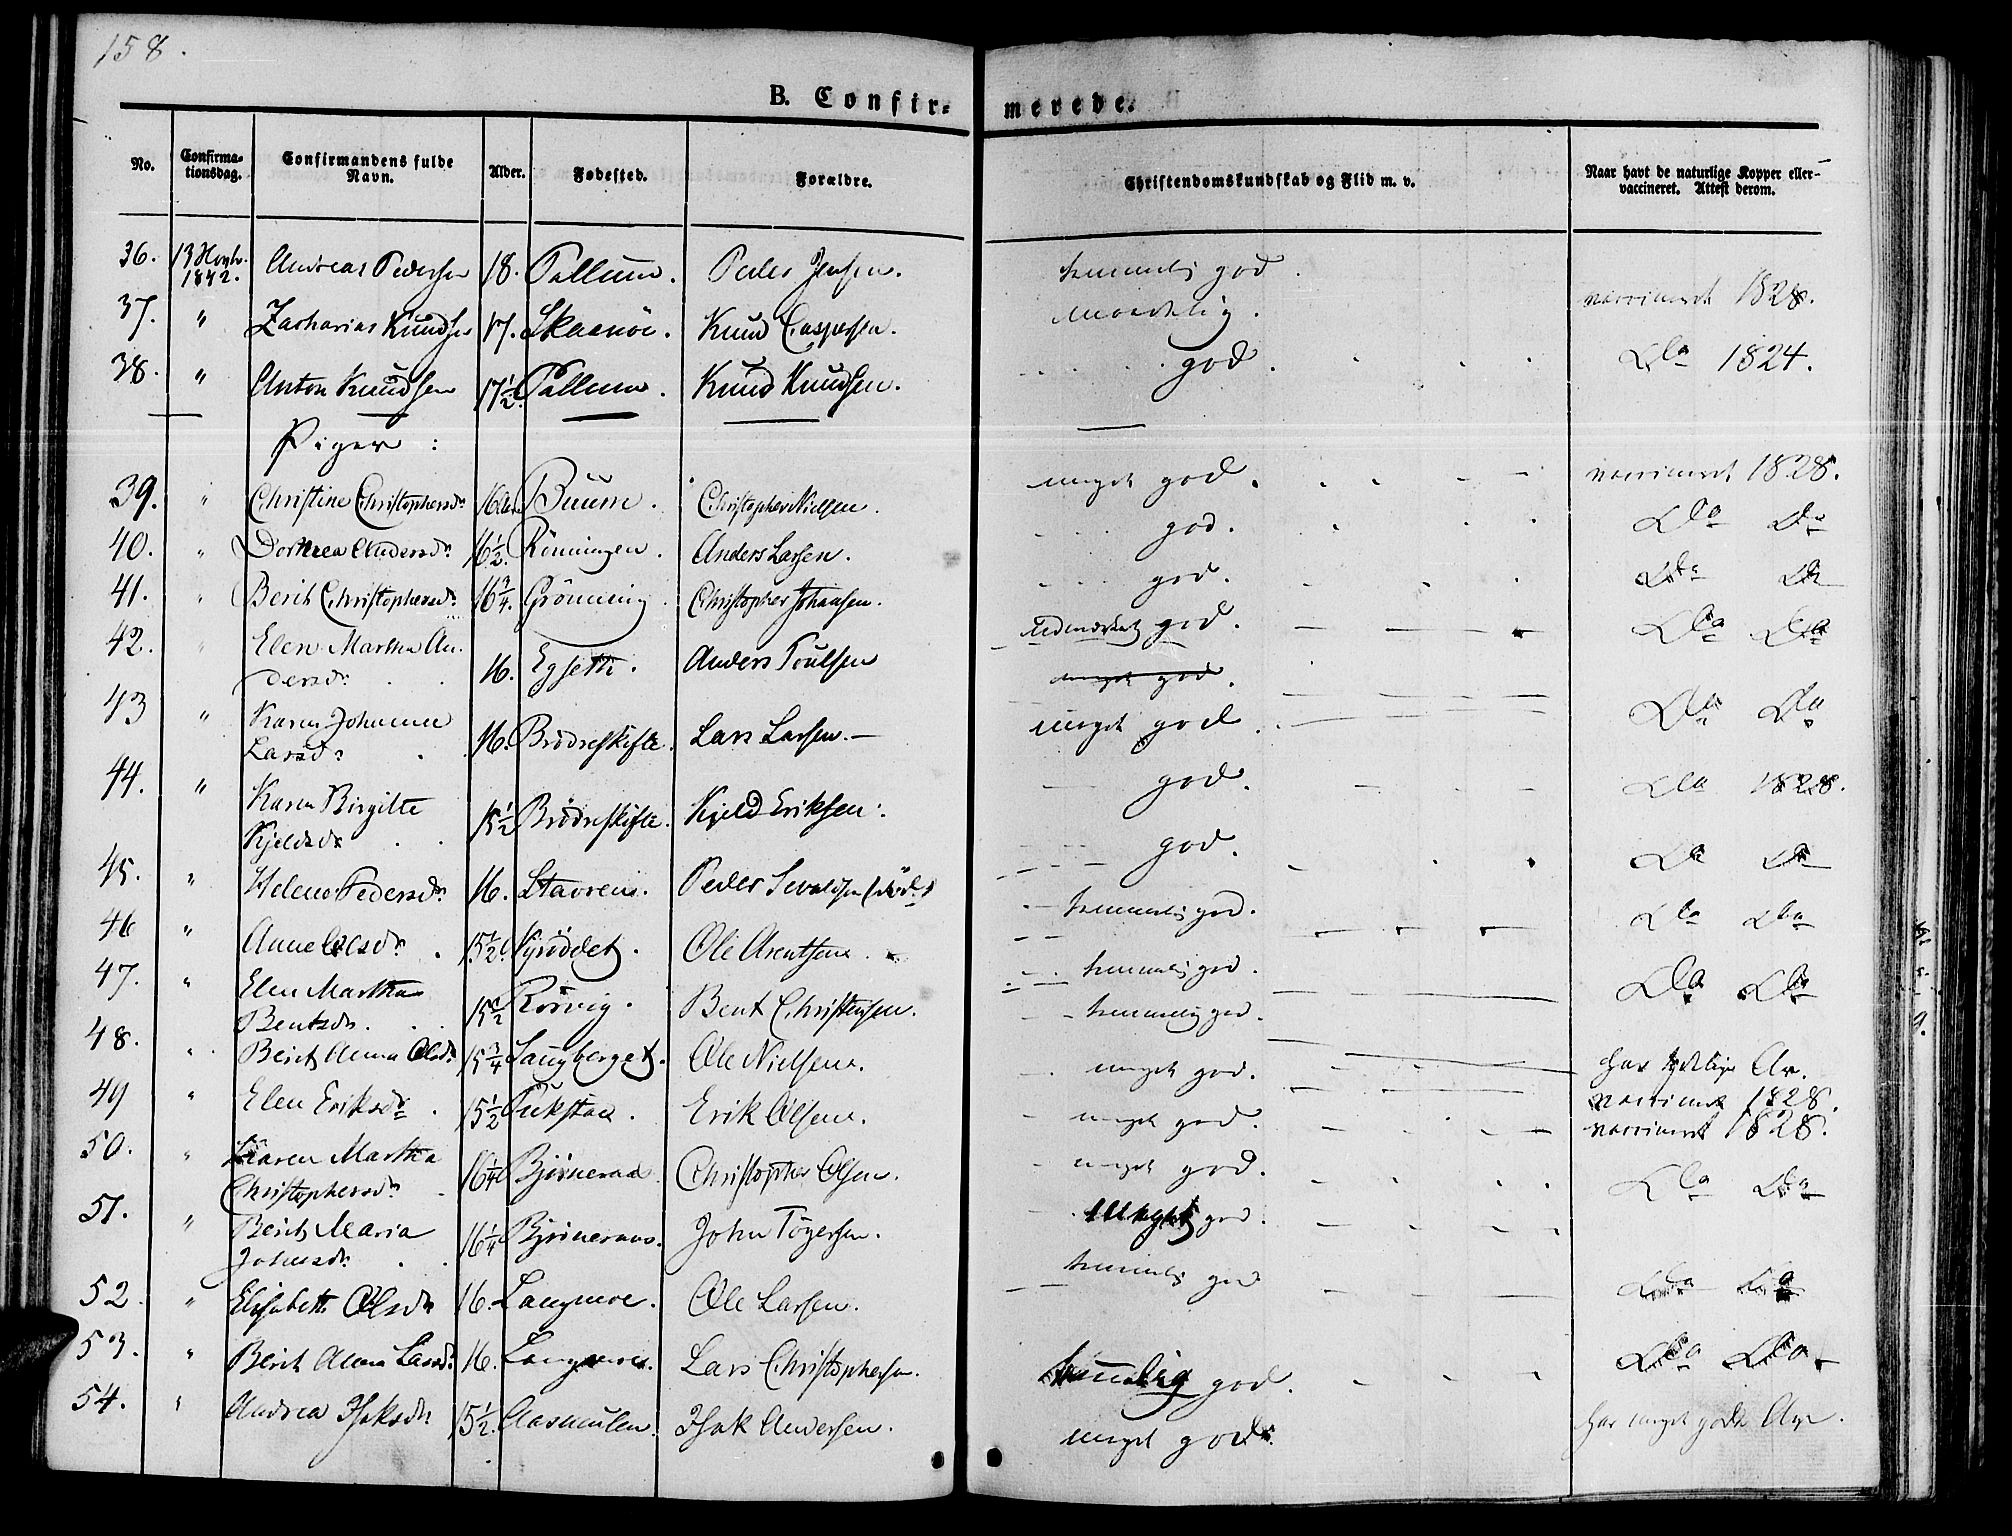 158.
B. Confir-
merede.
No.
Confirma-
tionsdag.
Confirmandens fulde
Navn.
Alder.
Fødested.
Forældre.
Christendomskundskab og Flid m. v.
Naar havt de naturlige Kopper eller
vaccineret. Attest derom.
36. 13 Novbr. 1842. Andreas Pedersen 18. Pallum. Peder Jensen. temmelig god. vaccineret 1828.
37. " Zacharias Knudsen 17. Skaanöe. Knud Caspersen. maadelig.
38. " Anton Knudsen 17½ Pallum. Knud Knudsen. god. Do 1824.
Piger:
39. " Christine Christophersdr. 16 Buum. Christopher Nielsen. meget god. vaccineret 1828.
40. " Dorthea Andersdr. 16½ Rönningen. Anders Larsen. god. Do Do
41. " Berit Christophersdr. 16¾ Grönning. Christopher Johansen. god. Do Do
42. " Elen Martha An-
dersdr. 16. Egseth. Anders Poulsen udmærket god. Do Do
meget god.
43 " Karen Johanna
Larsdr. 16. Brödreskifte. Lars Larsen. meget god. Do Do
44. " Karen Birgitte
Kjeldsdr. 15½ Brödreskifte. Kjeld Eriksen. god. Do 1828.
45. " Helene Pedersdr. 16. Stavren. Peder Sivaldsen (död) god. Do Do
46 " Anne Olsdr. 15½ Nyröddet. Ole Arentsen. temmelig god. Do Do
47. " Elen Martha
Bentsdr. 15½ Rörvig. Bent Christensen. temmelig god. Do Do
48. " Berit Anna Olsdr. 15¾ Langberget. Ole Nielsen. temmelig god. har tydelige Ar.
49 " Elen Eriksdr. 15½ Erik Olsen. meget god. vaccineret 1828.
50. " Karen Martha
Christophersdr. 16¼ Björneraa. Christopher Olsen. meget god. vaccineret 1828.
51. " Berit Maria
Johnsdr. 16¼ Björneraas. John Tögersen. meget god. Do Do
52. " Elisabeth Olsdr. 16. Langmoe. Ole Larsen. meget god.
temmelig god Do Do
53. " Berit Anna Larsdr. 16. Langmoe. Lars Christophersen. temmelig god. Do Do
54. " Andrea Isaksdr. 15½ Aasmulen. Isak Andersen. meget god. har meget gode Ar.